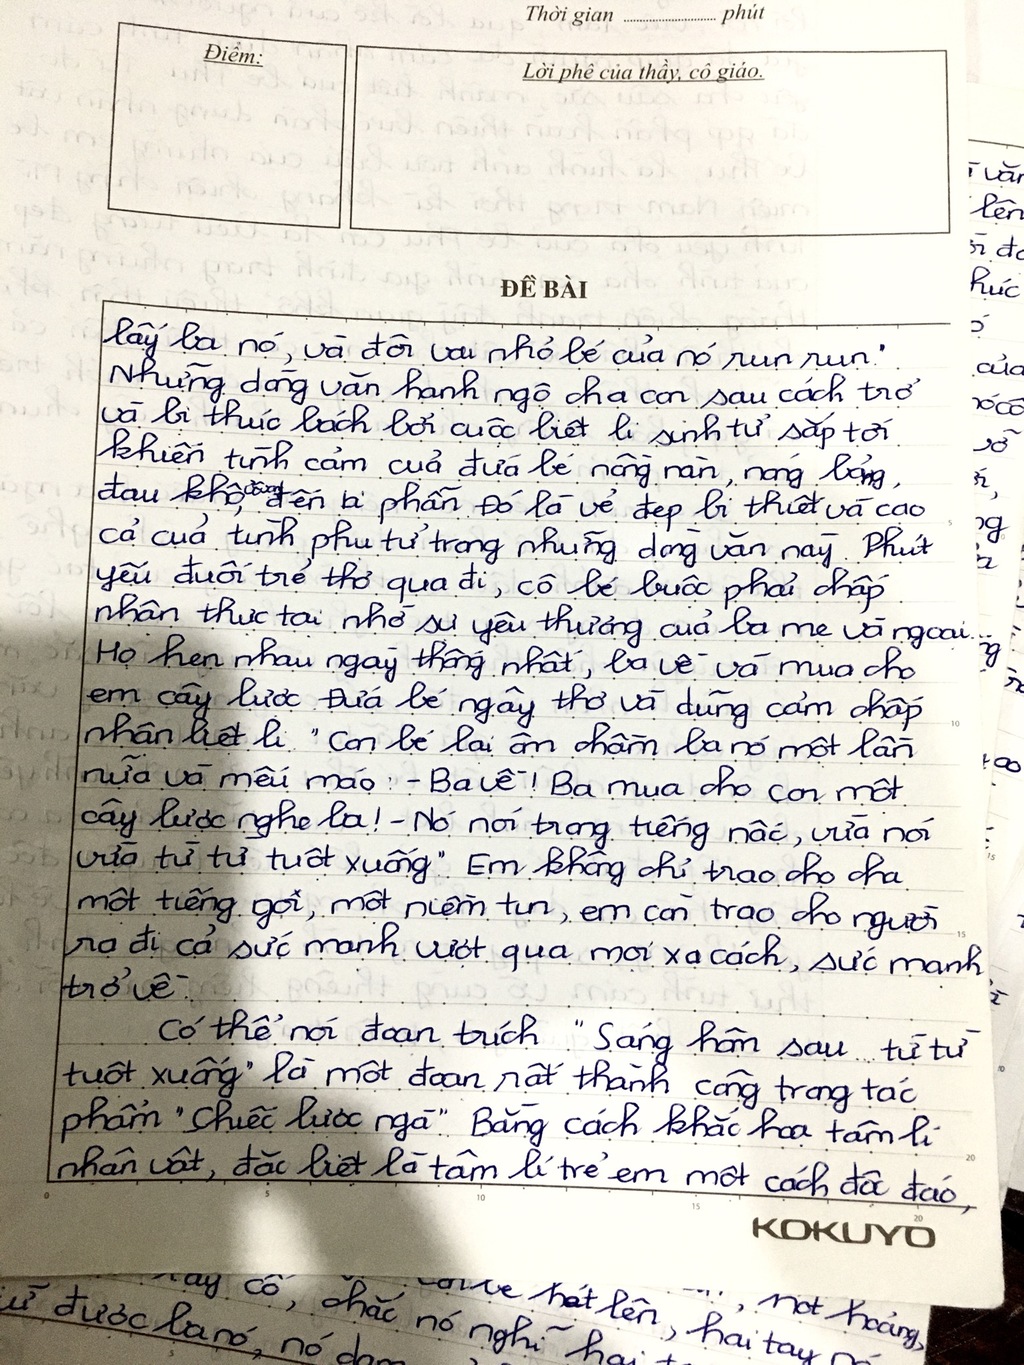 Thời gian .................. phút
Điểm:
Lời phê của thầy, cô giáo.
ĐỀ BÀI
lấy ba nó, và đôi vai nhỏ bé của nó run run."
Những dòng văn hạnh ngộ cha con sau cách trở
và bị thúc bách bởi cuộc biệt li sinh tử sắp tới
khiến tình cảm của đứa bé nồng nàn, nóng bỏng,
đau khổ, đến bi phẫn. Đó là vẻ đẹp bi thiết và cao
cả của tình phụ tử trong những dòng văn này. Phút
yếu đuối trẻ thơ qua đi, cô bé buộc phải chấp
nhận thực tại nhờ sự yêu thương của ba mẹ và ngoại...
Họ hẹn nhau ngày thống nhất, ba về và mua cho
em cây lược. Đứa bé ngây thơ và dũng cảm chấp
nhận biệt li "Con bé lại ôm chầm ba nó một lần
nữa và mếu máo: - Ba về! Ba mua cho con một
cây lược nghe ba! - Nó nói trong tiếng nấc, vừa nói
vừa từ từ tuột xuống" Em không chỉ trao cho cha
một tiếng gọi, một niềm tin, em còn trao cho người
ra đi cả sức mạnh vượt qua mọi xa cách, sức mạnh
trở về.
Có thể nói đoạn trích "Sáng hôm sau... từ từ
tuột xuống" là một đoạn rất thành công trong tác
phẩm "Chiếc lược ngà". Bằng cách khắc họa tâm lí
nhân vật, đặc biệt là tâm lí trẻ em một cách độc đáo,
0 5 10 15 20
5
10
15
20
KOKUYO
văn
lên
của
được ba nó, nó
chắc nó nghĩ hai
hét lên, hai tay nó
hoảng,